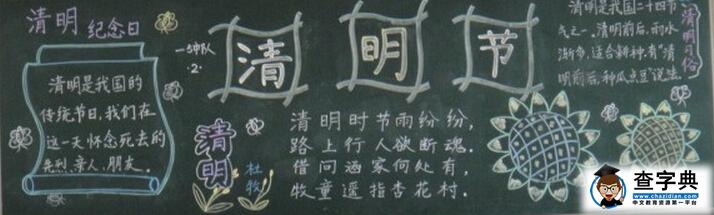 清明 纪念日
清明是我国的
传统节日,我们在
这一天怀念死去的
先烈、亲人、朋友。
一中队
·2·
清 明 节
清明
杜牧
清明时节雨纷纷,
路上行人欲断魂。
借问酒家何处有,
牧童遥指杏花村.
清明是我国二十四节
气之一,清明前后,雨水
渐多,适合耕种,有“清
明前后,种瓜点豆”说法.
清明习俗
查字典
www.chazidian.com
中文教育资源第一平台